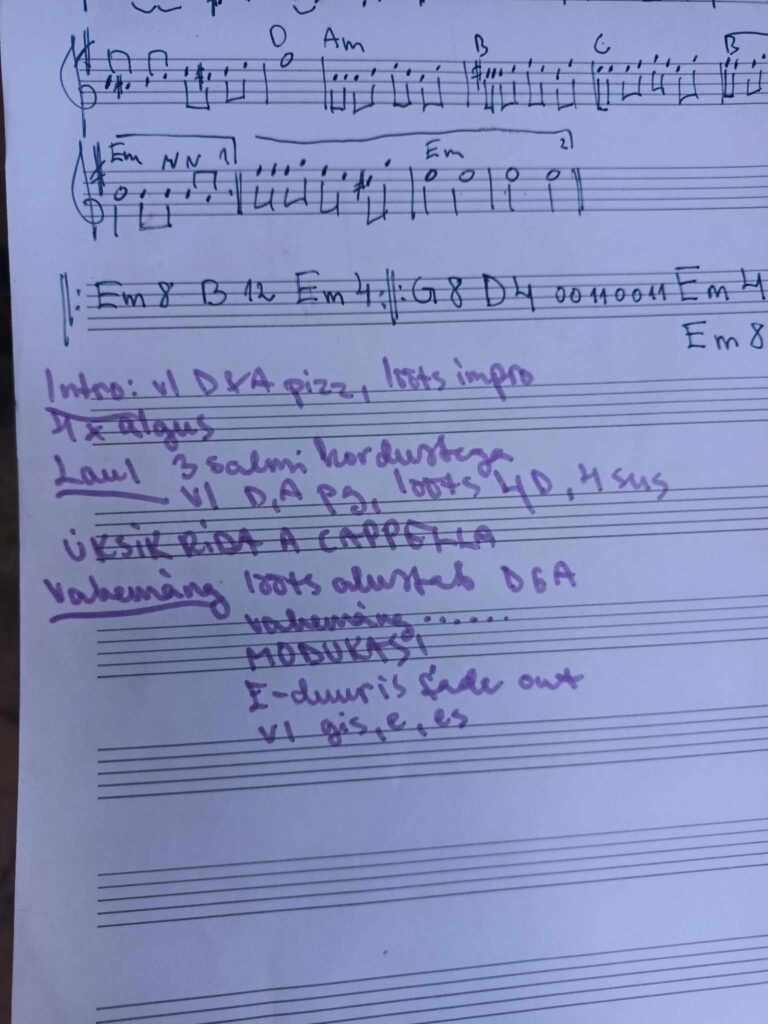 D Am B C B
Em NN 1 Em 2
Em 8 B 12 Em 4 G 8 D 4 00110011 Em 4
Em 8
Intro: vl D&A pizz, lõõts impro
4x algus
Laul 3 salmi kordustega
vl D, A pg, lõõts 4D, 4 sus
ÜKSIK RIDA A CAPPELLA
Vahemäng lõõts alustab DGA
vahemäng ......
E-duuris fade out
vl gis, e, es